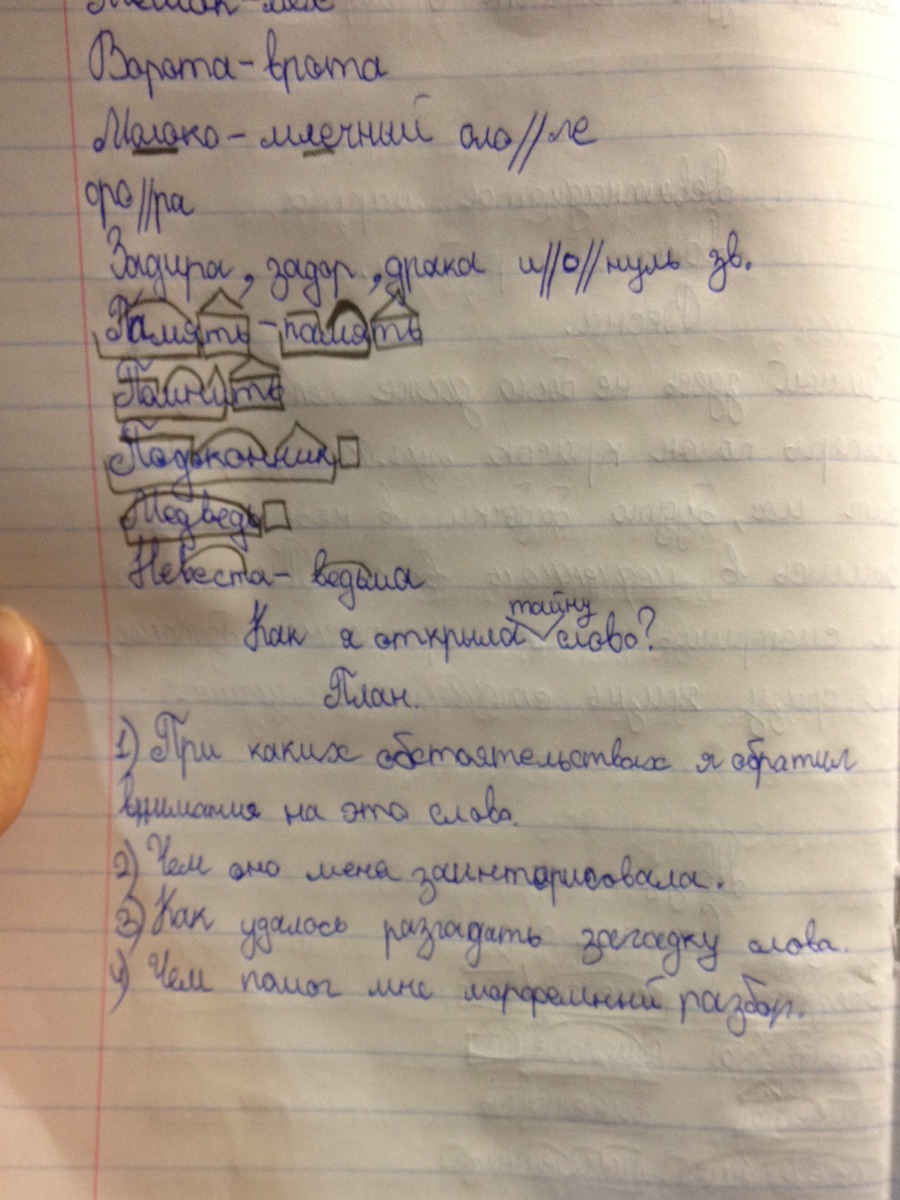 Ворота - врота
Молоко - млечний оло//ле
оро//ра
Задира, задор, драка и//о//нуль зв.
Память - память
Помнить
Подоконник
Медведь
Невеста - ведьма
тайну
Как я открыла слово?
План.
1) При каких обстоятельствах я обратил
внимания на это слова.
2) Чем оно меня заинторисовала.
3) Как удалось разгадать загадку слова.
4) Чем помог мне морфемный разбор.